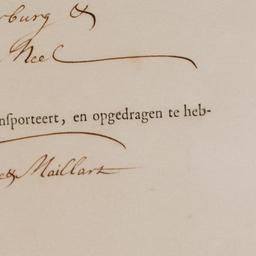 rburg &
Neel
nsporteert, en opgedragen te heb-
& Maillart